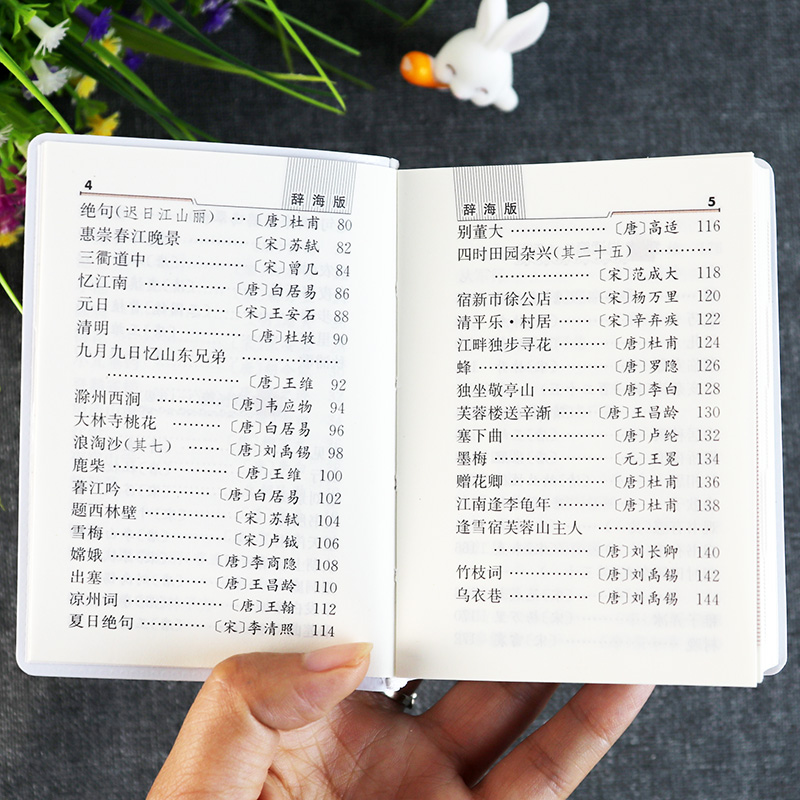 4
辞海版
绝句(迟日江山丽) …〔唐〕杜甫 80
惠崇春江晚景 ………〔宋〕苏轼 82
三衢道中 ……………〔宋〕曾几 84
忆江南 ………………〔唐〕白居易 86
元日 …………………〔宋〕王安石 88
清明 …………………〔唐〕杜牧 90
九月九日忆山东兄弟 ……………
……………………〔唐〕王维 92
滁州西涧 …………〔唐〕韦应物 94
大林寺桃花 ………〔唐〕白居易 96
浪淘沙(其七) ……〔唐〕刘禹锡 98
鹿柴 …………………〔唐〕王维 100
暮江吟 ……………〔唐〕白居易 102
题西林壁 …………〔宋〕苏轼 104
雪梅 …………………〔宋〕卢钺 106
嫦娥 ………………〔唐〕李商隐 108
出塞 ………………〔唐〕王昌龄 110
凉州词 ………………〔唐〕王翰 112
夏日绝句 …………〔宋〕李清照 114
辞海版
5
别董大 ………………〔唐〕高适 116
四时田园杂兴(其二十五) …………
……………………〔宋〕范成大 118
宿新市徐公店 ……〔宋〕杨万里 120
清平乐·村居 ……〔宋〕辛弃疾 122
江畔独步寻花 ………〔唐〕杜甫 124
蜂 ……………………〔唐〕罗隐 126
独坐敬亭山 …………〔唐〕李白 128
芙蓉楼送辛渐 ……〔唐〕王昌龄 130
塞下曲 ………………〔唐〕卢纶 132
墨梅 …………………〔元〕王冕 134
赠花卿 ………………〔唐〕杜甫 136
江南逢李龟年 ………〔唐〕杜甫 138
逢雪宿芙蓉山主人 ………………
………………〔唐〕刘长卿 140
竹枝词 ……………〔唐〕刘禹锡 142
乌衣巷 ……………〔唐〕刘禹锡 144